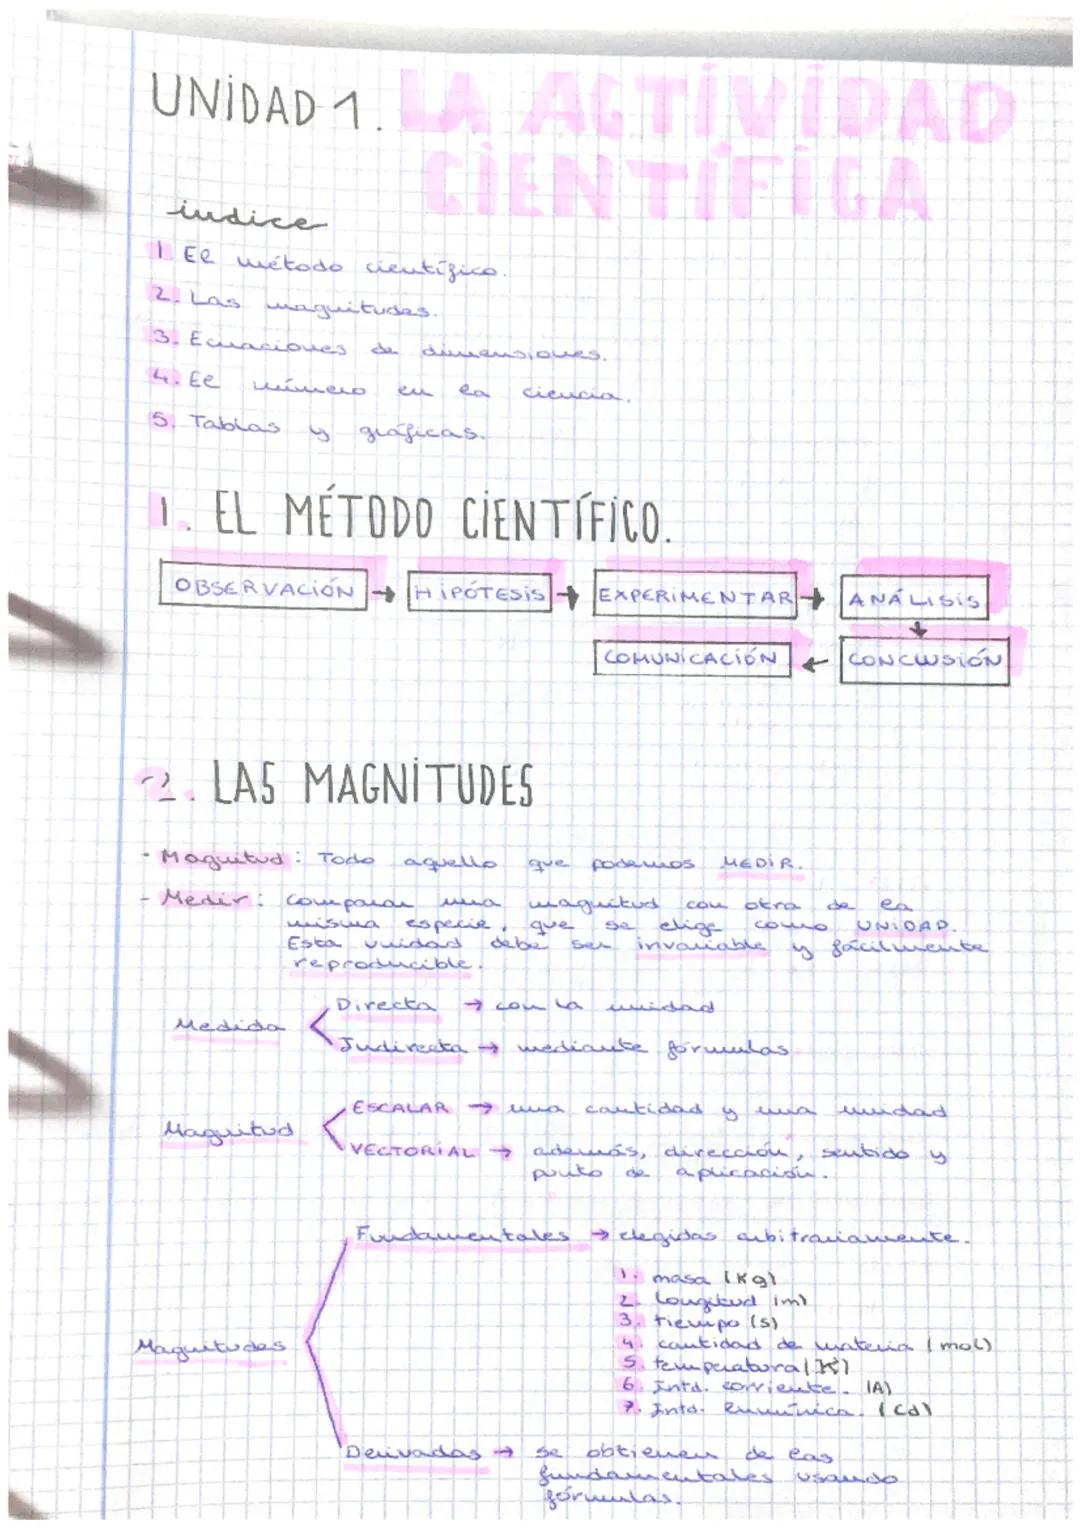 UNIDAD 1. LA ACTIVIDAD
CIENTÍFICA
índice
1 El método científico.
2. Las magnitudes.
3. Ecuaciones de dimensiones.
4. El número en la ciencia.
5. Tablas y gráficas.
1. EL MÉTODO CIENTÍFICO.
OBSERVACIÓN → HIPÓTESIS → EXPERIMENTAR → ANÁLISIS
↓
COMUNICACIÓN ← CONCLUSIÓN
2. LAS MAGNITUDES
- Magnitud: Todo aquello que podemos MEDIR.
- Medir: comparar una magnitud con otra de la
misma especie, que se elige como UNIDAD.
Esta unidad debe ser invariable y fácilmente
reproducible.
Medida
Directa → con la unidad
Indirecta → mediante fórmulas
Magnitud
ESCALAR → una cantidad y una unidad
VECTORIAL → además, dirección, sentido y
punto de aplicación.
Magnitudes
Fundamentales → elegidas arbitrariamente.
1. masa (Kg)
2. Longitud (m)
3. tiempo (s)
4. cantidad de materia (mol)
5. temperatura (K)
6. Intd. corriente. (A)
7. Intd. lumínica. (Cd)
Derivadas → se obtienen de las
fundamentales usando
fórmulas.